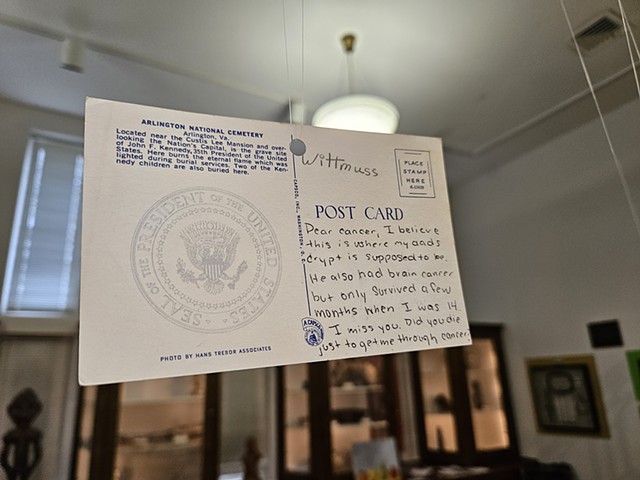 ARLINGTON NATIONAL CEMETERY
Arlington, Va.
Located near the Custis Lee Mansion and over-
looking the Nation's Capital, is the grave site
of John F. Kennedy, 35th President of the United
States. Here burns the eternal flame which was
lighted during burial services. Two of the Ken-
nedy children are also buried here.
SEAL OF THE PRESIDENT OF THE UNITED STATES
PHOTO BY HANS TREDOR ASSOCIATES
CAPSCO, INC., WASHINGTON, D.C.
Wittmuss
PLACE
STAMP
HERE
POST CARD
Dear cancer, I believe
this is where my dads
crypt is supposed to be.
He also had brain cancer
but only survived a few
months when I was 14.
I miss you. Did you die
just to get me through cancer.